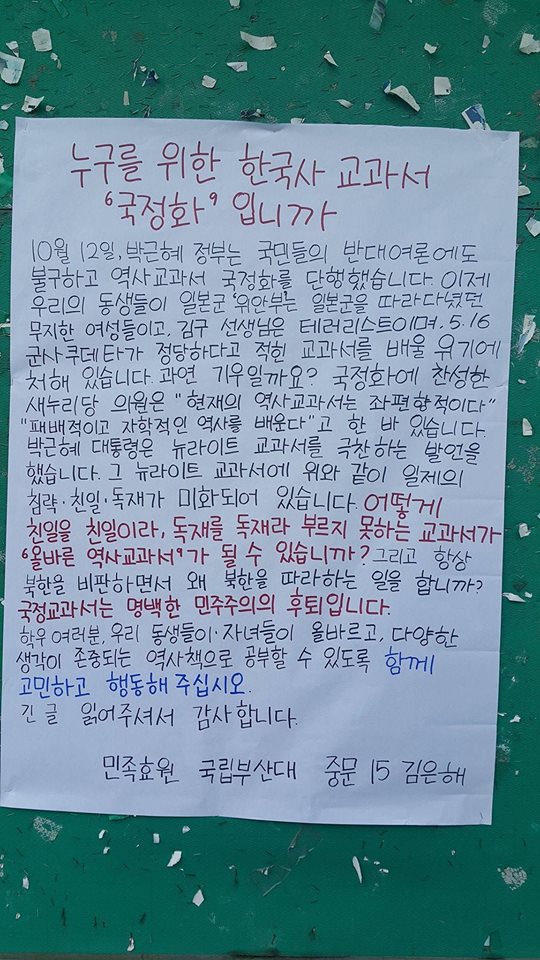 누구를 위한 한국사 교과서
'국정화' 입니까
10월 12일, 박근혜 정부는 국민들의 반대여론에도
불구하고 역사교과서 국정화를 단행했습니다. 이제
우리의 동생들이 일본군 '위안부'는 일본군을 따라다녔던
무지한 여성들이고, 김구 선생님은 테러리스트이며, 5.16
군사쿠데타가 정당하다고 적힌 교과서를 배울 위기에
처해 있습니다. 과연 기우일까요? 국정화에 찬성한
새누리당 의원은 "현재의 역사교과서는 좌편향적이다"
"패배적이고 자학적인 역사를 배운다"고 한 바 있습니다.
박근혜 대통령은 뉴라이트 교과서를 극찬하는 발언을
했습니다. 그 뉴라이트 교과서에 위와 같이 일제의
침략·친일·독재가 미화되어 있습니다. 어떻게
친일을 친일이라, 독재를 독재라 부르지 못하는 교과서가
'올바른 역사교과서'가 될 수 있습니까? 그리고 항상
북한을 비판하면서 왜 북한을 따라하는 일을 합니까?
국정교과서는 명백한 민주주의의 후퇴입니다.
학우 여러분, 우리 동생들이·자녀들이 올바르고, 다양한
생각이 존중되는 역사책으로 공부할 수 있도록 함께
고민하고 행동해 주십시오.
긴 글 읽어주셔서 감사합니다.
민족효원 국립부산대 중문 15 김은해